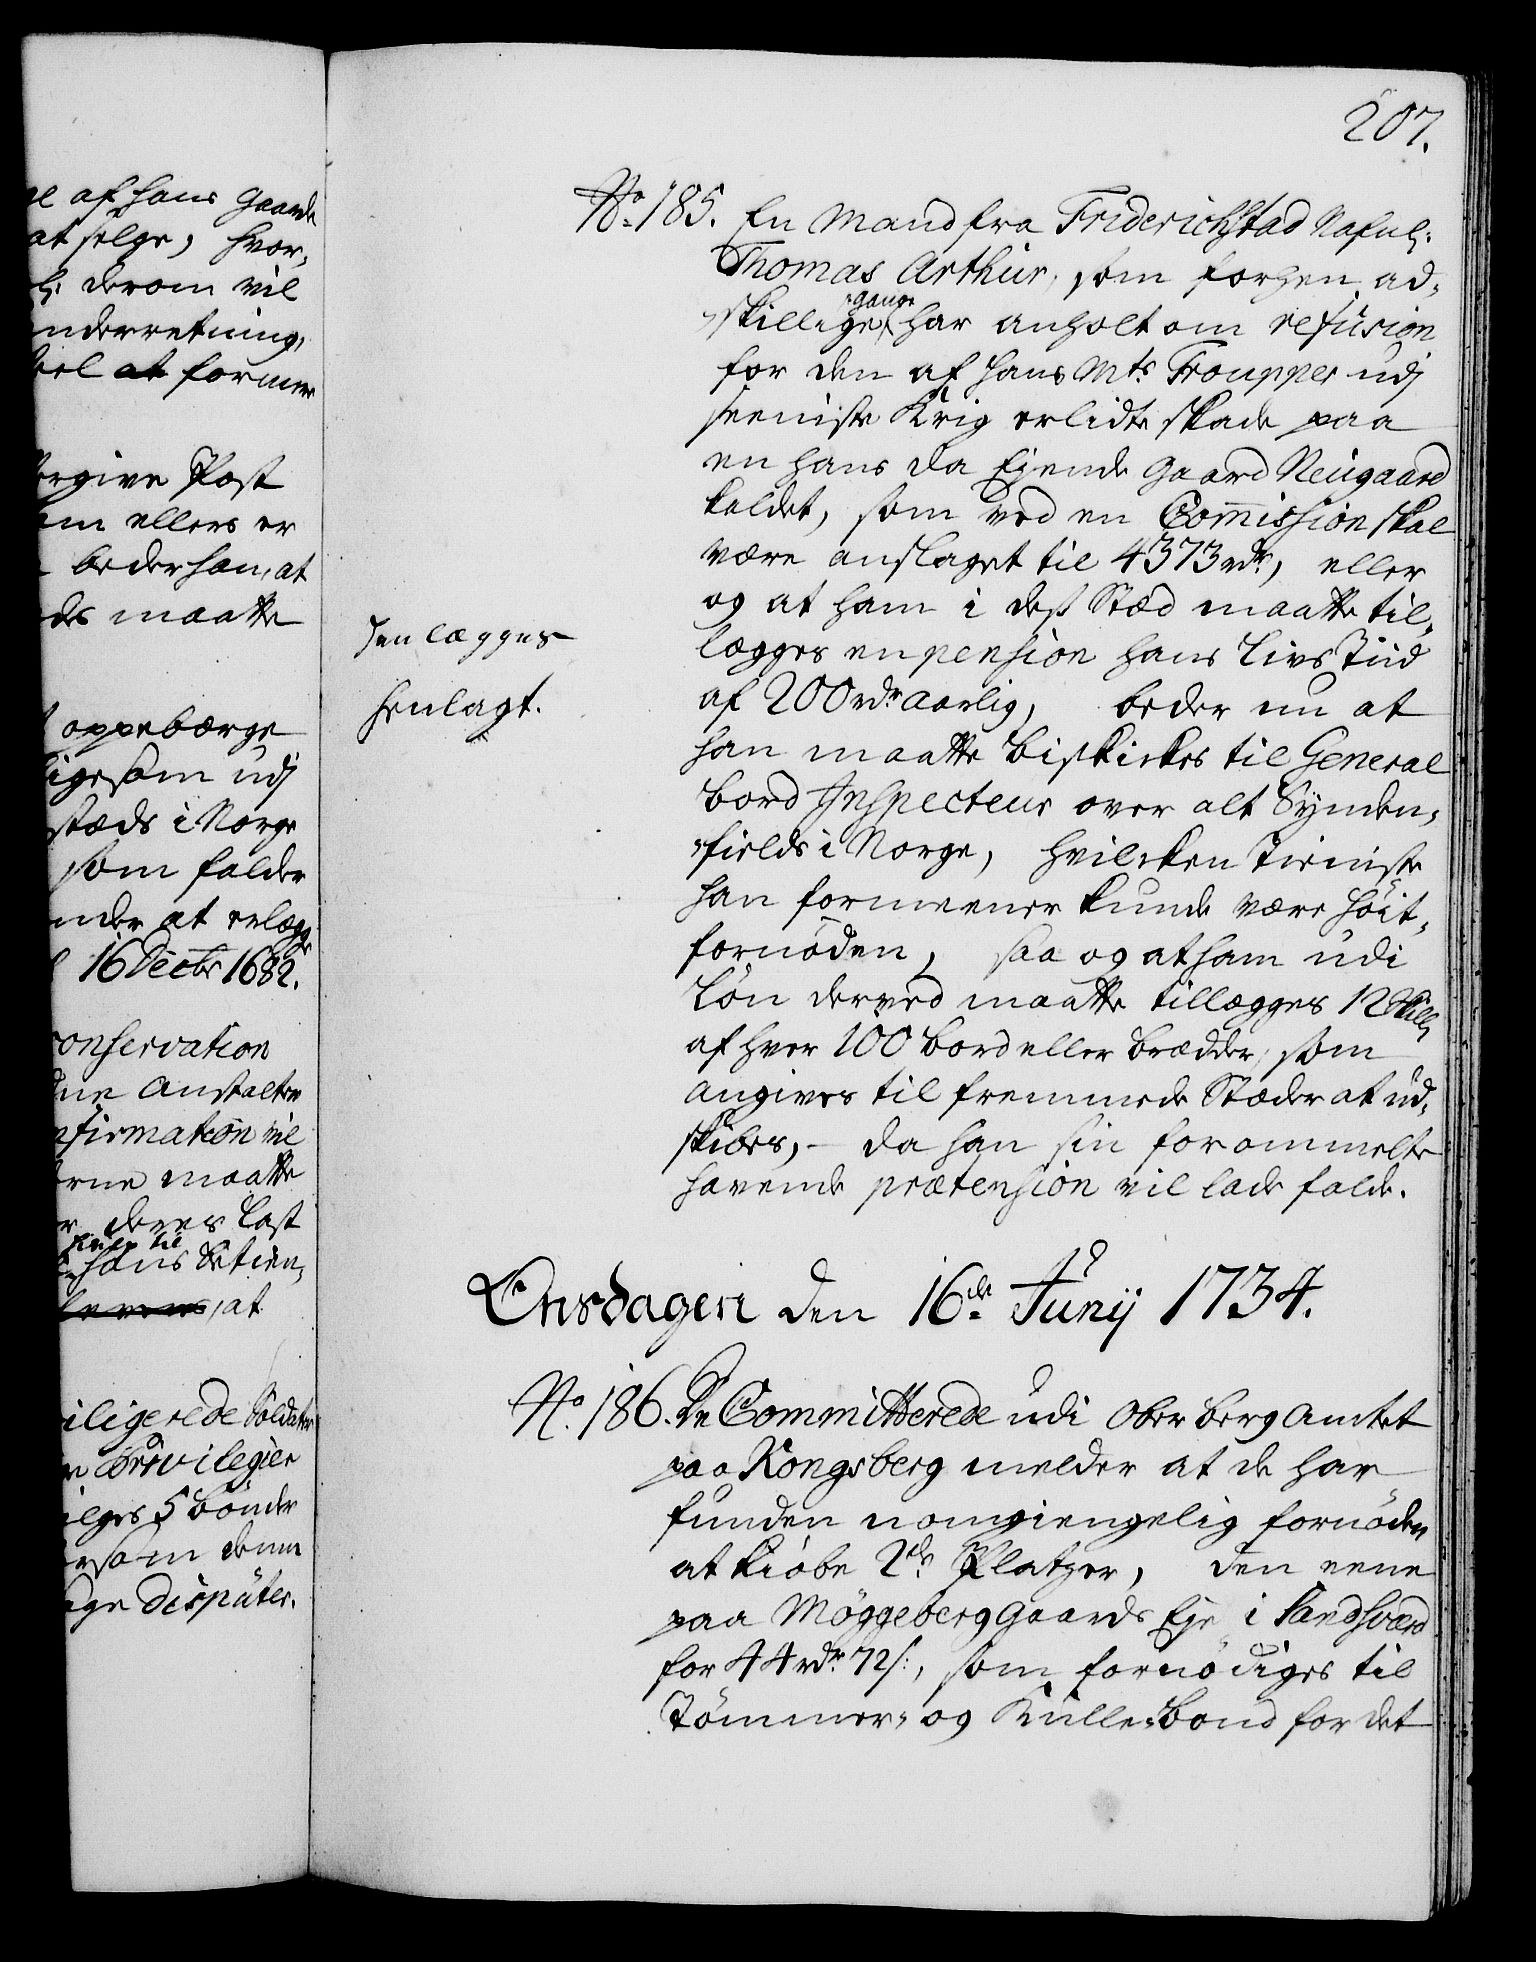 207.
af hans Gaarde
at selge, hvor,
derom vil
underretning,
at formere
Post
ellers er
beder han, at
maatte
oppebærge
ligesom udj
stæds i Norge
som falder
at erlægge
16 Decbr 1682.
Conservation
Anstalter
Confirmation vil
maatte
deres Last
til
hans betien,
at
Soldater
Privilegier
5 bönder
som denne
disputer.
No. 185. En Mand fra Friderichstad Nafnl:
Thomas Arthur, som forhen ad„
„gange
„skillige har anholt om refusion
for den af hans Mts. Troupper udj
seeniste Krig erlidte skade paa
en hans da Ejende Gaard Neugaard
kaldet, som ved en Commission skal
være anslaget til 4373 rdr., eller
og at ham i dess Stæd maatte til„
lægges en pension hans Livs Tiid
af 200 rdr. aarlig, beder nu at
han maatte beskickes til General
bord Inspecteur over alt Synden„
„fields i Norge, hvilcken Tieniste
han formeener kunde være höit„
fornöden, saa og at ham udi
Lön derved maatte tillægges 12 Skill
af hver 100 bord eller brædder, som
angives til fremmede Stæder at ud„
skibes, - da han sin forommelte
havende prætension vil lade falde.
henlægges
henlagt.
Onsdagen den 16de Junij 1734.
No. 186. De Committerede udi Ober berg Amtet
paa Kongsberg melder at de har
funden uomgiengelig fornöden
at kiöbe 2de Platzer, den eene
paa Möggeberg Gaards Eje i Sandsværd
for 44 rdr. 72 s:, som fornödiges til
Tömmer„ og Kulle„bond for det